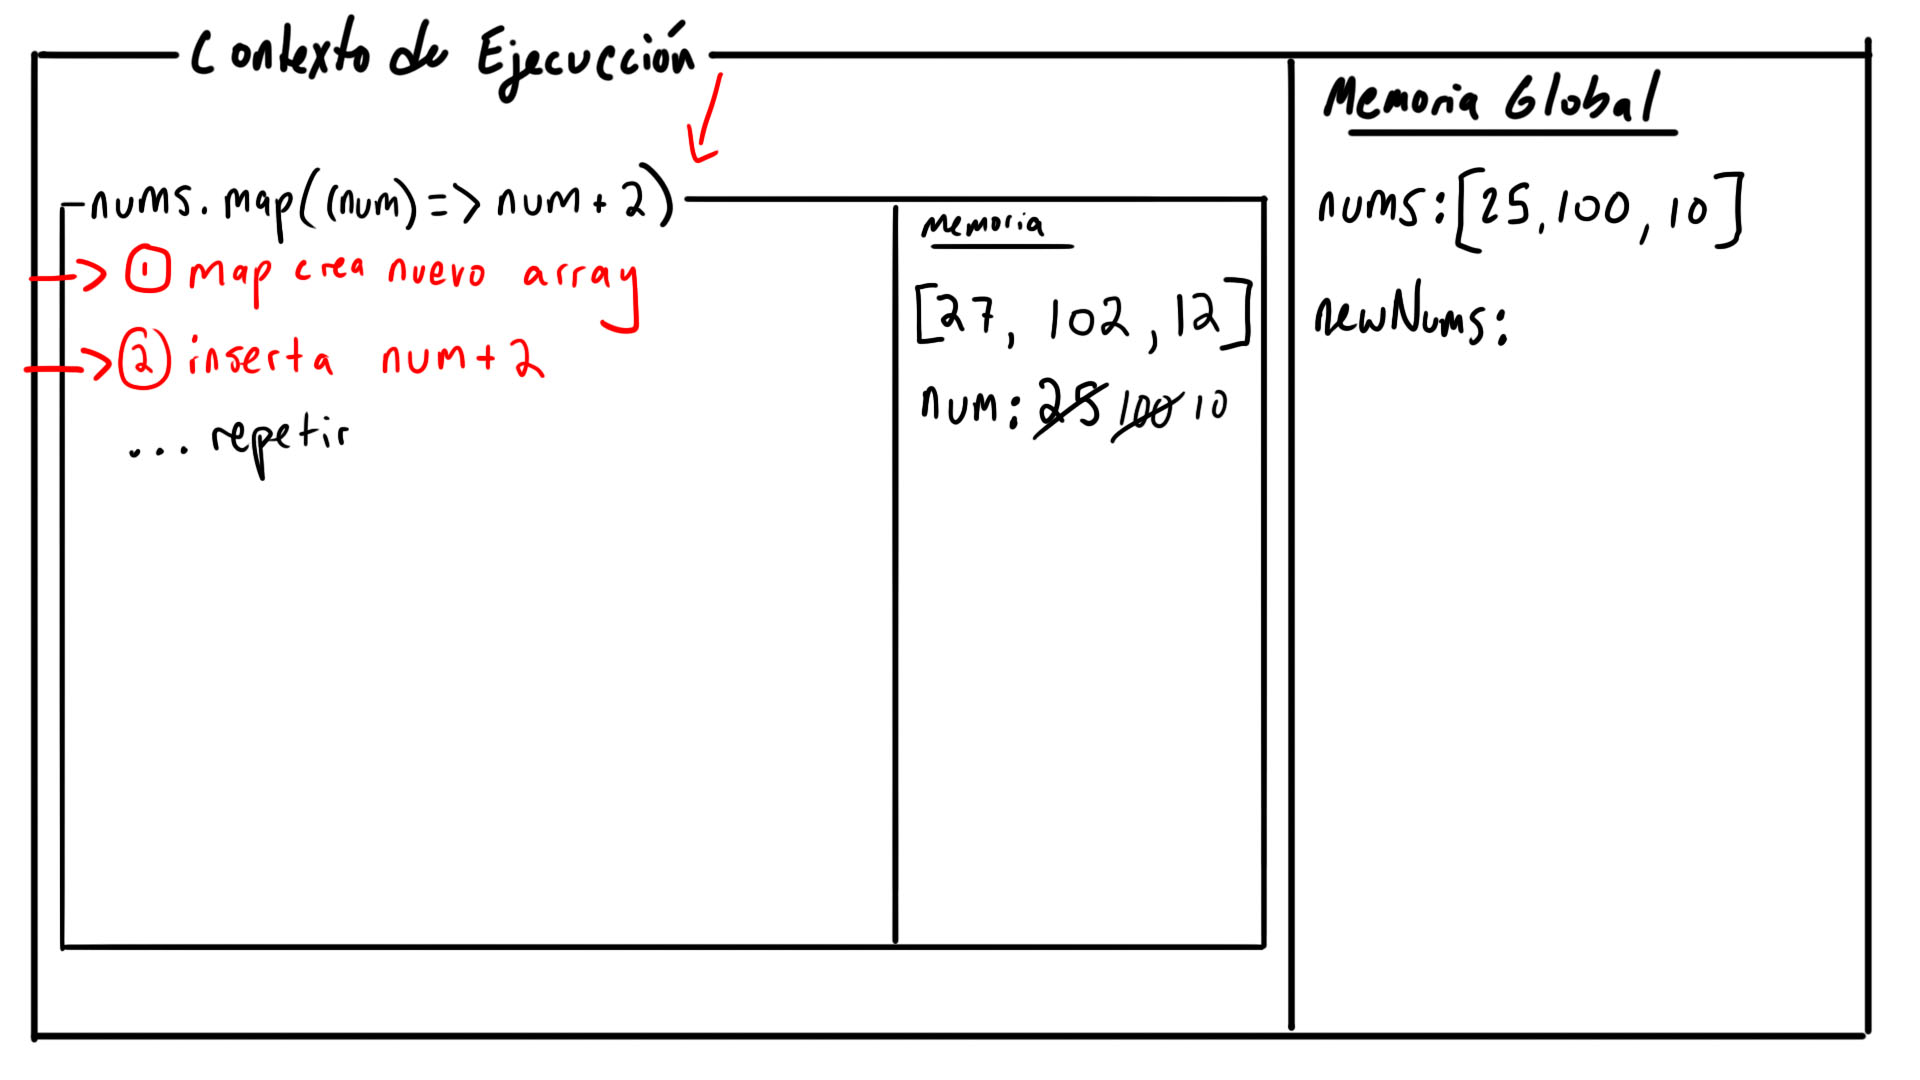 Contexto de Ejecucción
nums.map((num) => num + 2)
① map crea nuevo array
② inserta num + 2
... repetir
Memoria
[27, 102, 12]
num: 25 100 10
Memoria Global
nums: [25, 100, 10]
newNums: